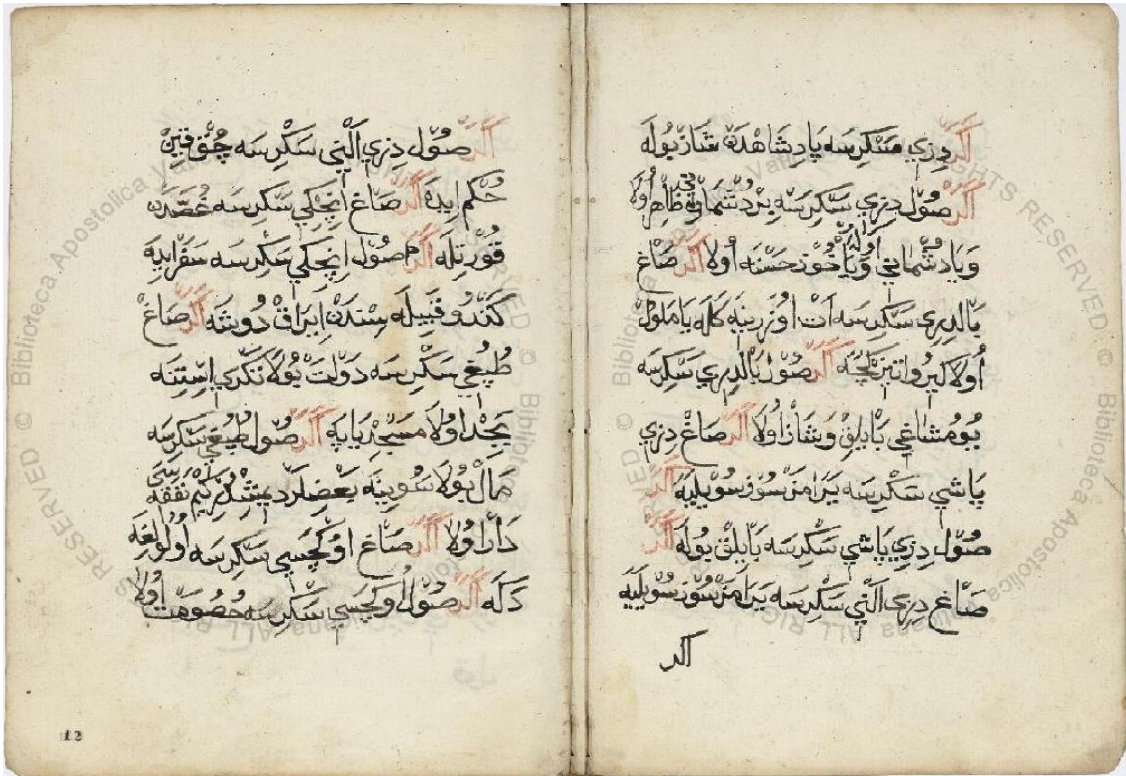 اكر دزي سكرسه پادشاهدن شاذ بوله
اكر صول دزي سكرسه بر دشمان ظاهر اولا
ويا دشماني اوله ويا حسنه اولا اكر صاغ
بالديري سكرسه ات اوزرينه كله يا ملول
اولا اكر صول بالديري سكرسه
يومشاغي بايلق و شاذ اولا اكر صاغ دزي
باشي سكرسه يرامز سوز سويليه اكر
صول دزي باشي سكرسه بايلق بوله اكر
صاغ دزي التي سكرسه يرامز سوز سويليه
اكر
اكر صول دزي التي سكرسه چوق
حكم ايده اكر صاغ انجكي سكرسه غصه دن
قورتله اكر صول انجكي سكرسه سفر ايده
كندو قبيله سندن ايراق دوشه اكر صاغ
طپغي سكرسه دولت بولا تكري استنه
اولا مسجد ياپه اكر صول طپغي سكرسه
مال بولا سوينه بعضلر ديمشلر كيم نفقه سي
دار اولا اكر صاغ اوكچسي سكرسه اولولغه
دكه اكر صول اوكچسي سكرسه خصومت اولا
12
© Biblioteca Apostolica Vaticana ALL RIGHTS RESERVED
© Biblioteca Apostolica Vaticana ALL RIGHTS RESERVED